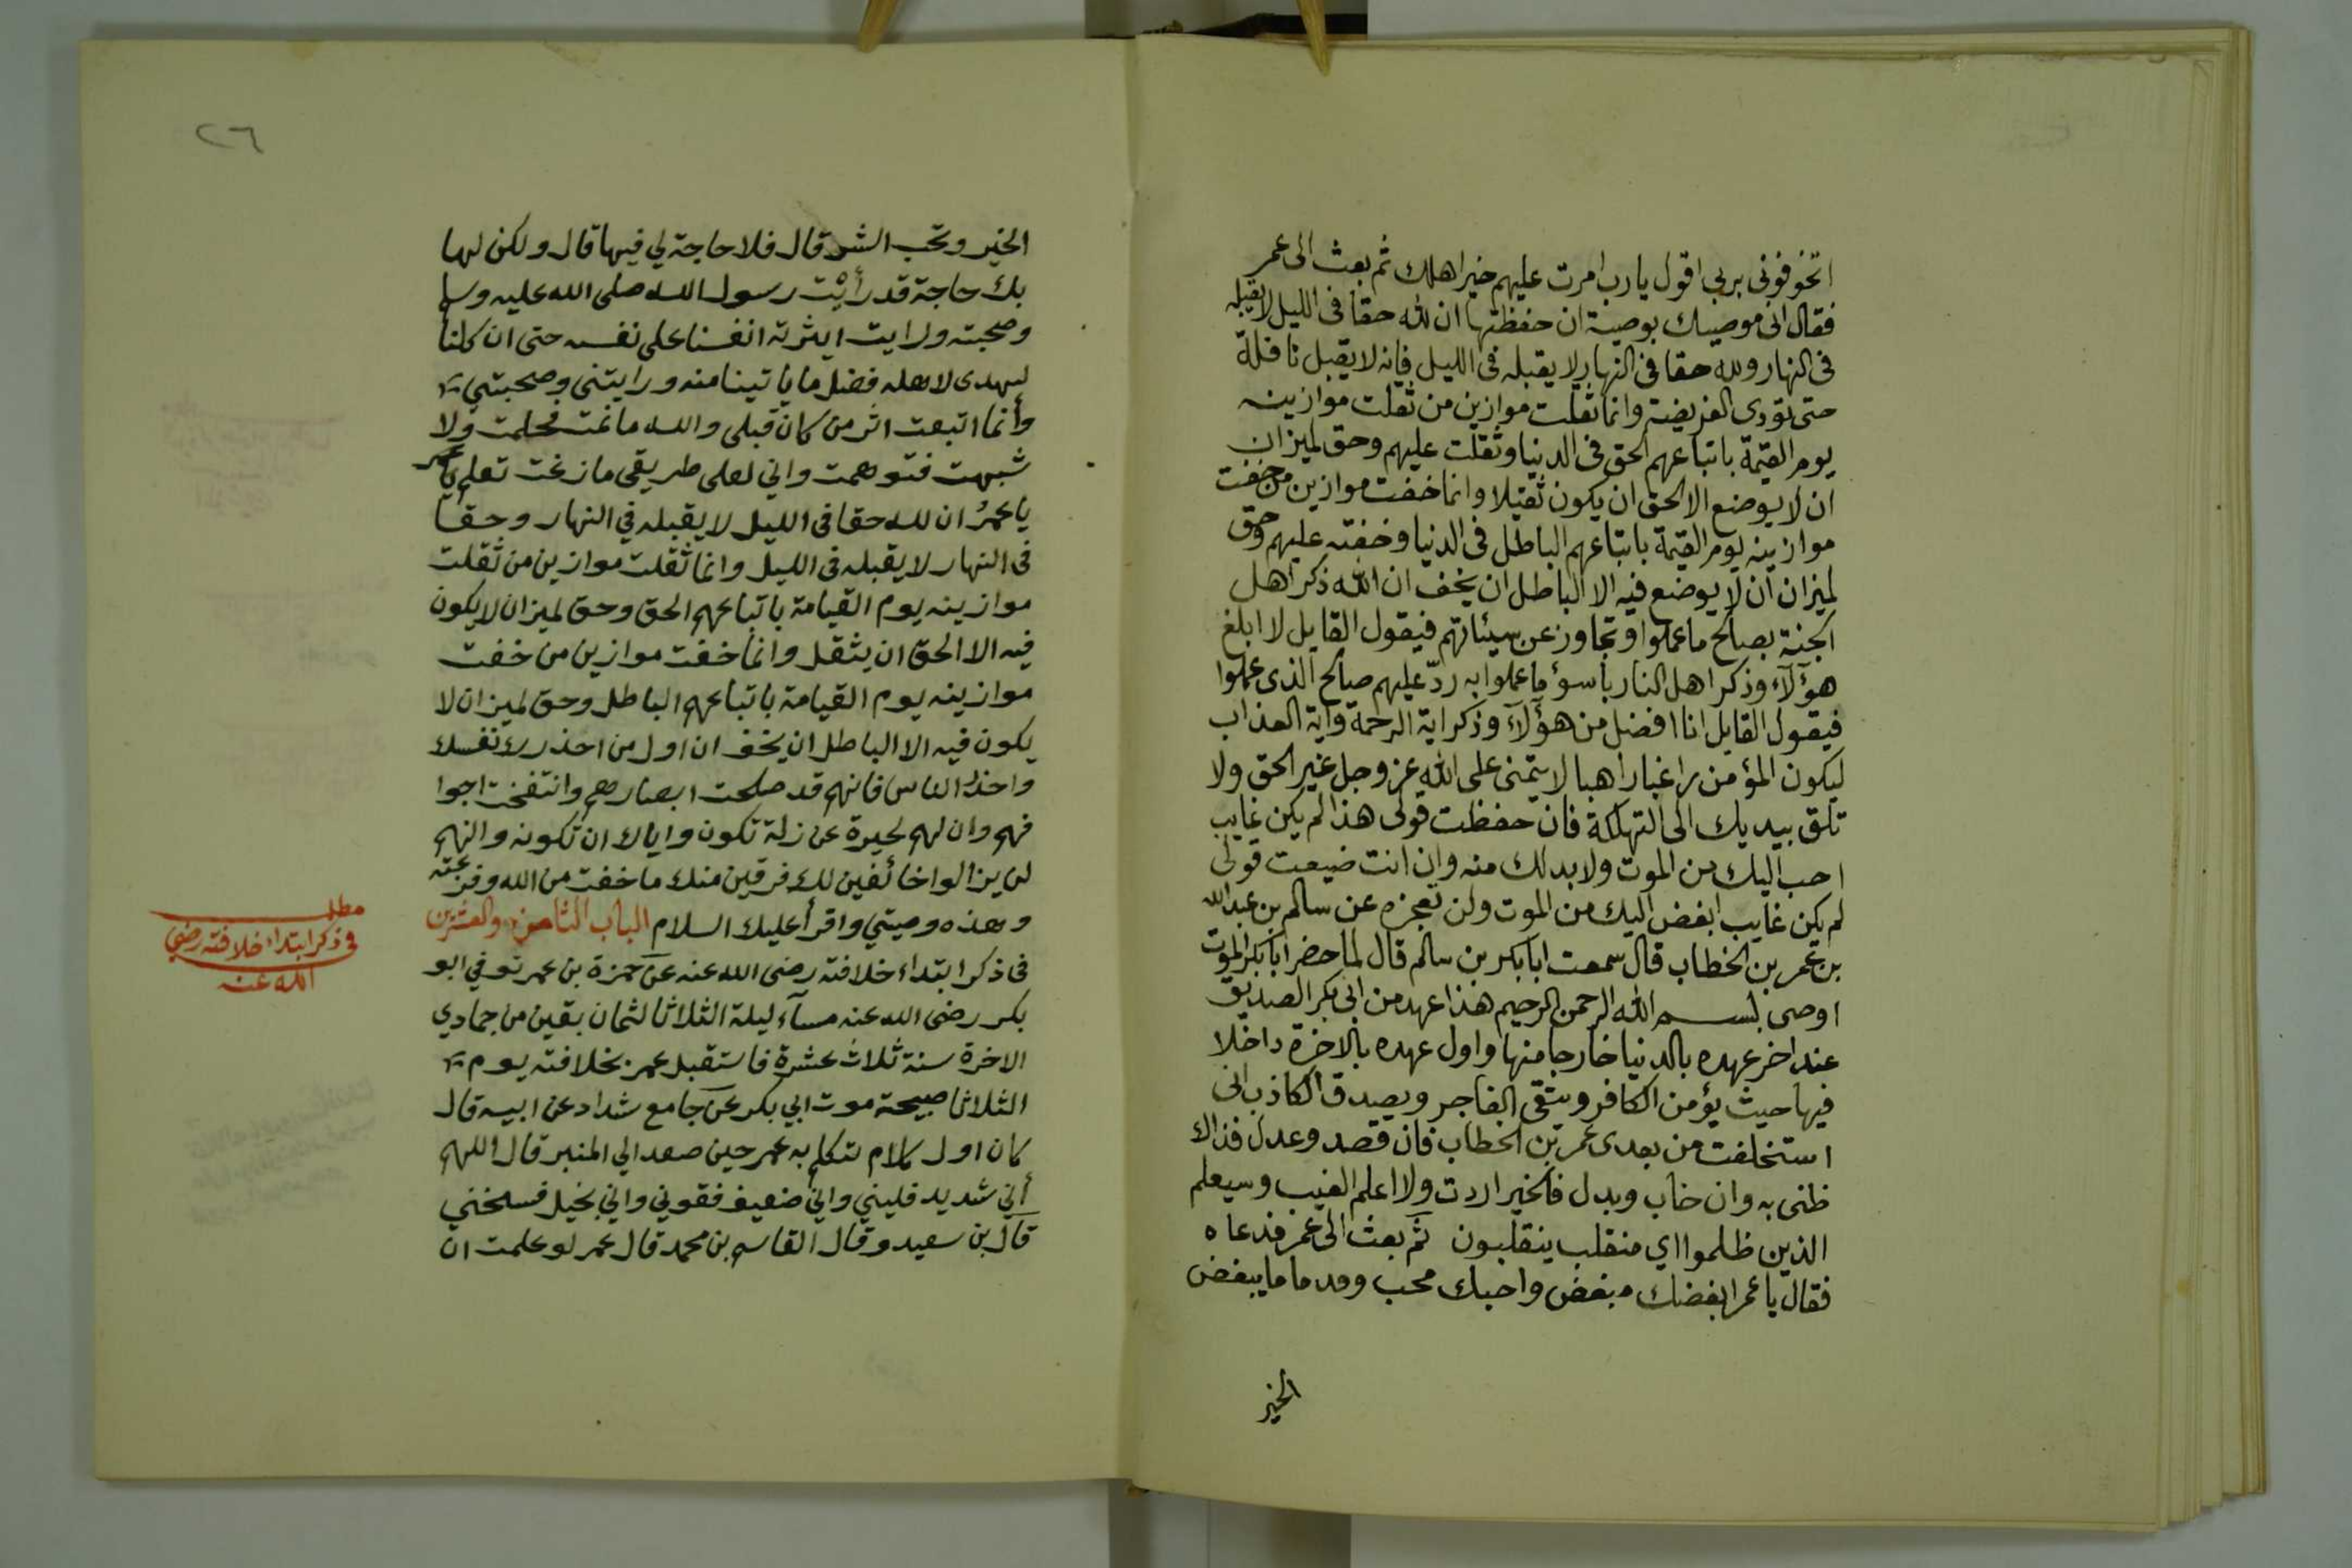 اتخوفونى بربي اقول يارب امرت عليهم خير اهلك ثم بعث الى عمر
فقال انى موصيك بوصية ان حفظتها ان لله حقا فى الليل لا يقبله
فى النهار ولله حقا فى النهار لا يقبله فى الليل فانه لا يقبل نافلة
حتى تؤدى الفريضة وانما ثقلت موازين من ثقلت موازينه
يوم القيمة باتباعهم الحق فى الدنيا وثقلت عليهم وحق لميزان
ان لا يوضع الا الحق ان يكون ثقيلا وانما خفت موازين من خفت
موازينه يوم القيمة باتباعهم الباطل فى الدنيا وخفته عليهم وحق
لميزان ان لا يوضع فيه الا الباطل ان يخف ان الله ذكر اهل
الجنة بصالح ما عملوا وتجاوز عن سيئاتهم فيقول القايل لا ابلغ
هؤلآء وذكر اهل النار باسؤ ما عملوا به ردّ عليهم صالح الذى عملوا
فيقول القايل انا افضل من هؤلآ وذكر اية الرحمة واية العذاب
ليكون المؤمن راغبا راهبا لا يتمنى على الله عز وجل غير الحق ولا
تلق بيديك الى التهلكة فان حفظت قولى هذا لم يكن غايب
احب اليك من الموت ولا بد لك منه وان انت ضيعت قولى
لم يكن غايب ابغض اليك من الموت ولن تعجزه عن سالم بن عبد الله
بن عمر بن الخطاب قال سمعت ابا بكر بن سالم قال لما حضر ابا بكر الموت
اوصى بسم الله الرحمن الرحيم هذا عهد من ابى بكر الصديق
عند اخر عهده بالدنيا خارجا منها واول عهده بالاخرة داخلا
فيها حيث يؤمن الكافر ويتقى الفاجر ويصدق الكاذب انى
استخلفت من بعدى عمر بن الخطاب فان قصد وعدل فذاك
ظنى به وان خاب وبدل فالخير اردت ولا اعلم الغيب وسيعلم
الذين ظلموا اي منقلب ينقلبون ثم بعث الى عمر فدعاه
فقال يا عمر ابغضك مبغض واحبك محب وقدما ما يبغض
الخير
٢٦
الخير وتحب الشر قال فلا حاجة لي فيها قال ولكن لها
بك حاجة قد رأيت رسول الله صلى الله عليه وسلم
وصحبته ورايت ايثرته انفسنا على نفسه حتى ان كلنا
ليهدى لاهله فضل ما ياتينا منه ورايتنى وصحبتني
وأنما اتبعت اثر من كان قبلى والله ما نمت فحلمت ولا
شبهت فتوهمت واني لعلى طريقى ما زغت تعلم يا عمر
يا عمرُ ان لله حقا فى الليل لا يقبله في النهار وحقا
فى النهار لا يقبله فى الليل وانما ثقلت موازين من ثقلت
موازينه يوم القيامة باتباعهم الحق وحق لميزان لا يكون
فيه الا الحق ان يثقل وانما خفت موازين من خفت
موازينه يوم القيامة باتباعهم الباطل وحق لميزان لا
يكون فيه الا الباطل ان يخف ان اول من احذرك نفسك
واحذر الناس فانهم قد صلحت ابصارهم وانتفخت اجوا
فهم وان لهم لحيرة عن زلة تكون واياك ان تكونه والنهم
لن يزالوا خائفين لك فرقين منك ما خفت من الله وفرقته
وهذه وصيتي واقرأ عليك السلام الباب الثامن والعشرين
فى ذكر ابتداء خلافته رضى الله عنه عن حمزة بن عمر توفي ابو
بكر رضى الله عنه مسآء ليلة الثلاثا لثمان بقين من جمادي
الاخرة سنة ثلاث عشرة فاستقبل عمر بخلافته يوم
الثلاثا صبيحة موت ابي بكر عن جامع شداد عن ابيه قال
كان اول كلام تكلم به عمر حين صعد الي المنبر قال اللهم
أني شديد فليني واني ضعيف فقوني واني بخيل فسخني
قال بن سعيد وقال القاسم بن محمد قال عمر لو علمت ان
مطلب
فى ذكر ابتداء خلافته رضي
الله عنه